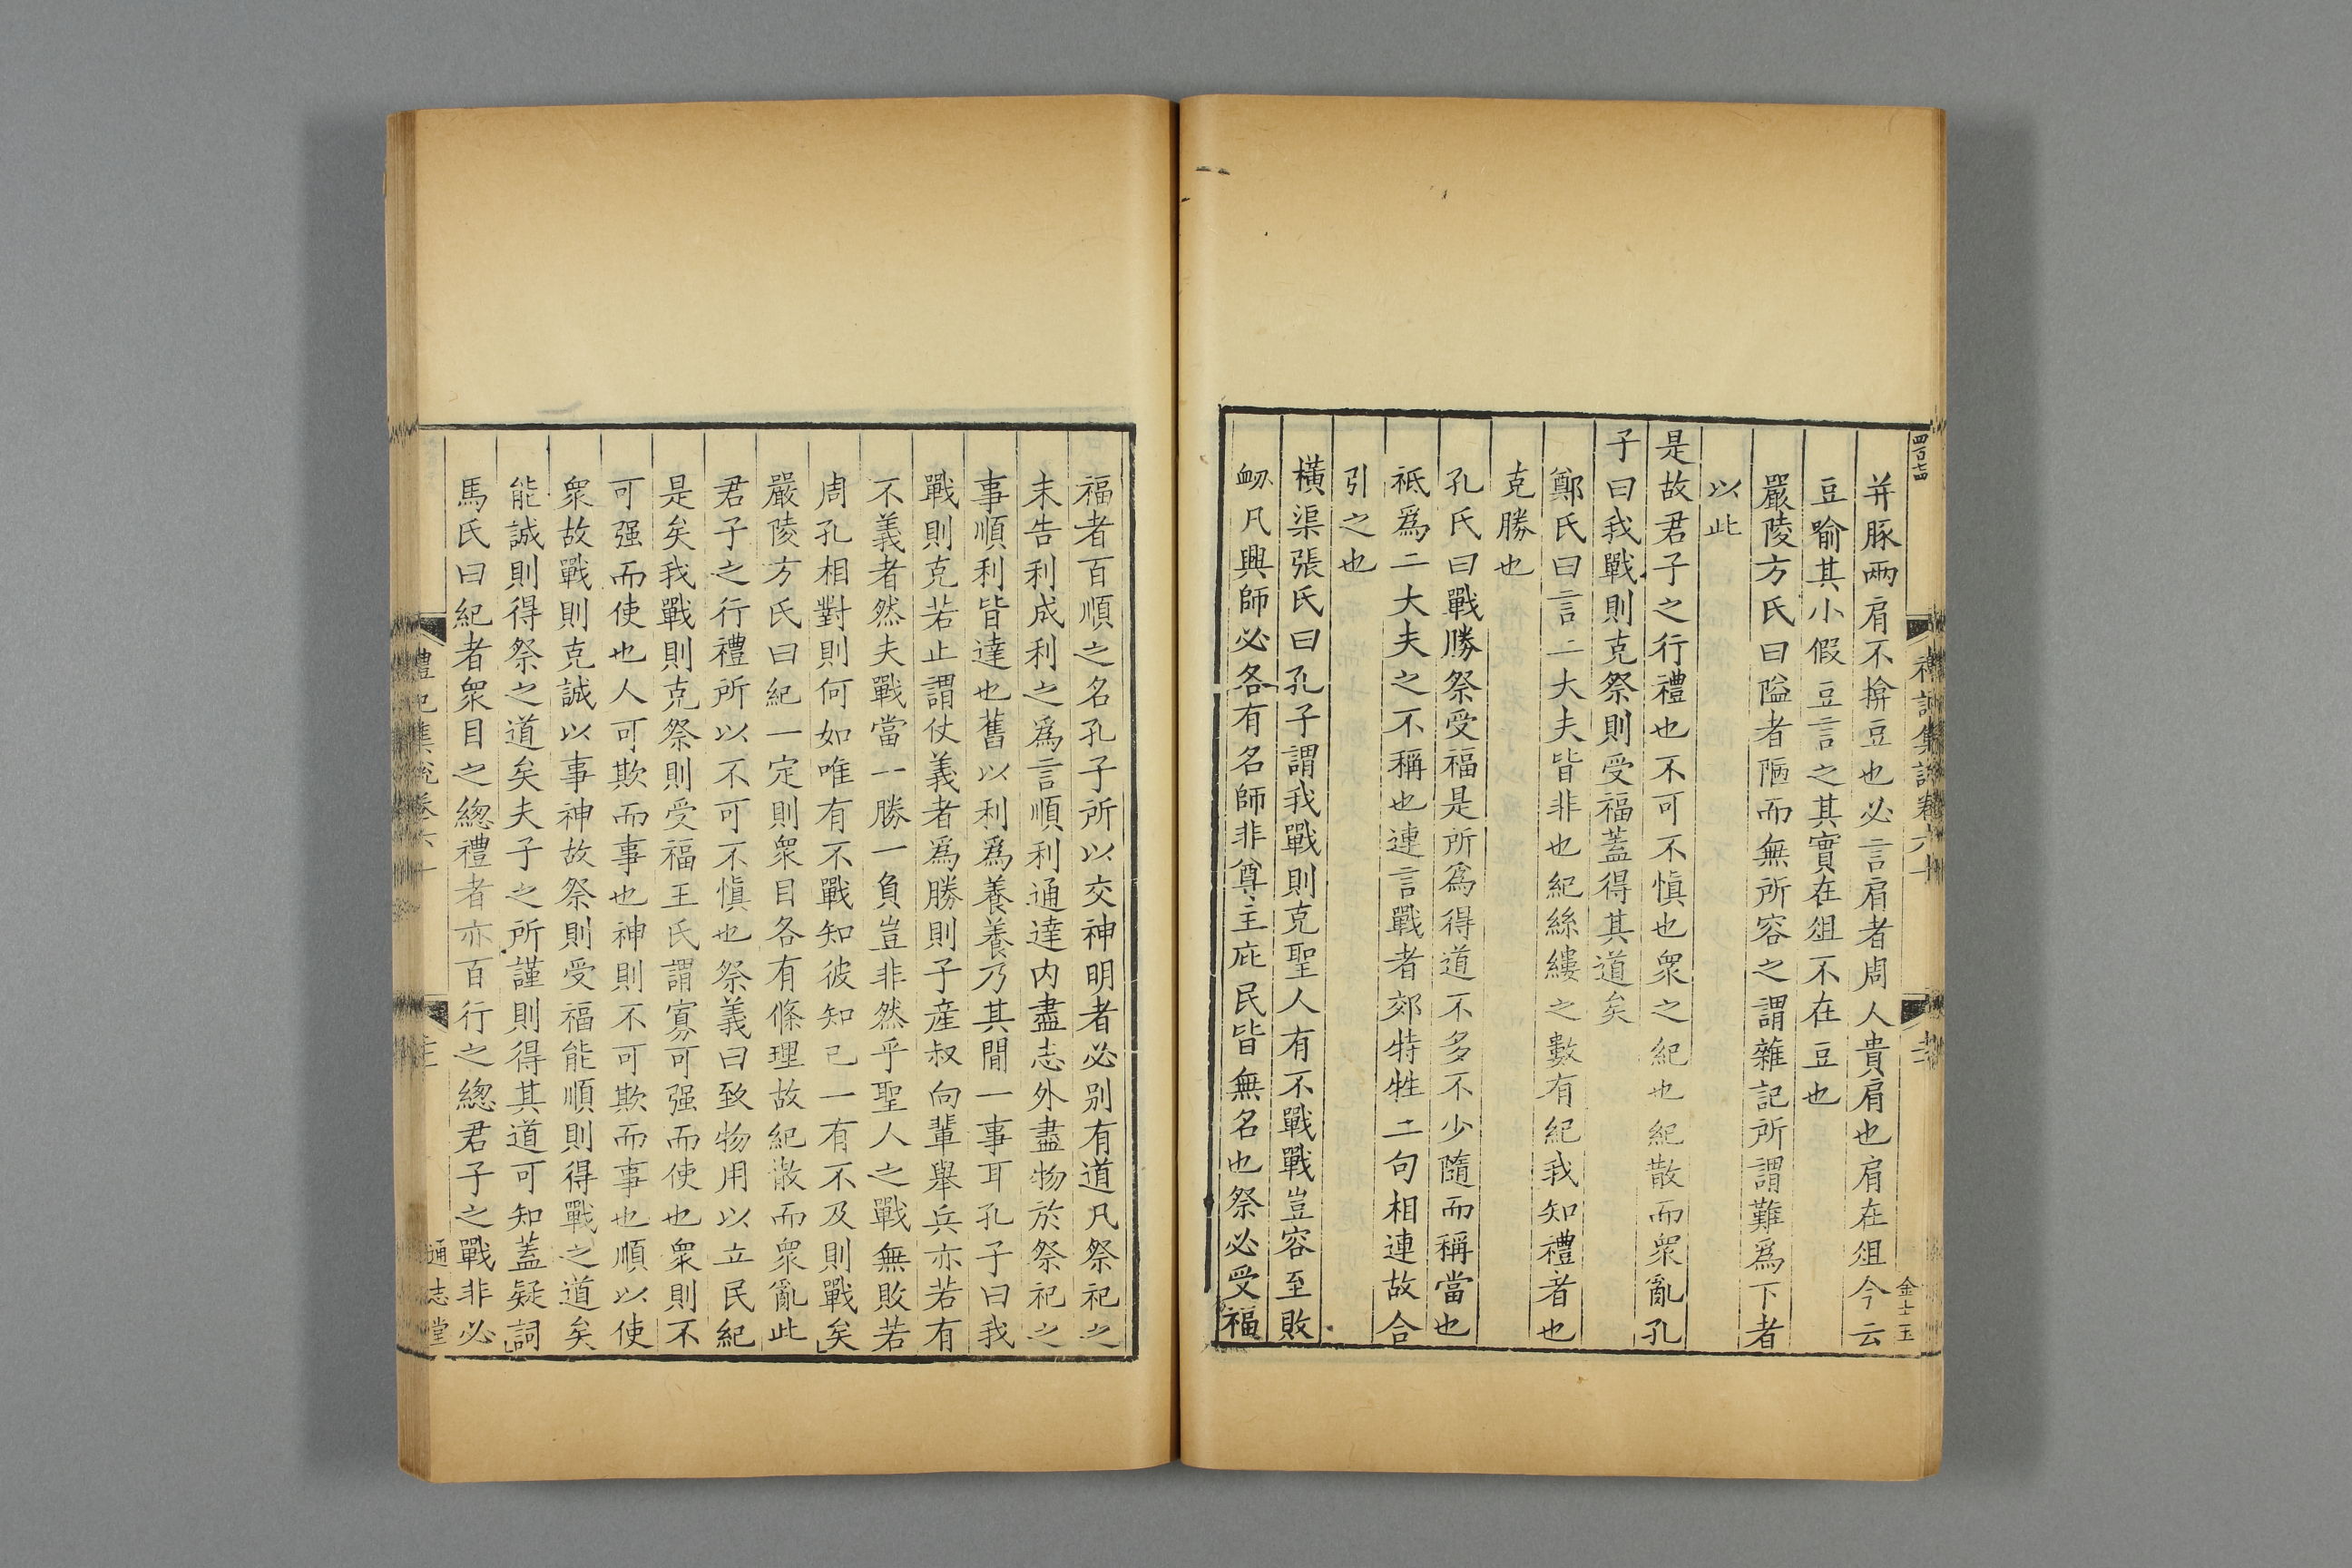 并豚兩肩不揜豆也必言肩者周人貴肩也肩在俎今云
豆喻其小假豆言之其實在俎不在豆也
嚴陵方氏曰隘者陋而無所容之謂雜記所謂難為下者
以此
是故君子之行禮也不可不慎也衆之紀也紀散而衆亂孔
子曰我戰則克祭則受福蓋得其道矣
鄭氏曰言二大夫皆非也紀絲縷之數有紀我知禮者也
克勝也
孔氏曰戰勝祭受福是所爲得道不多不少隨而稱當也
祗爲二大夫之不稱也連言戰者郊特牲二句相連故合
引之也
橫渠張氏曰孔子謂我戰則克聖人有不戰戰豈容至敗
衂凡興師必各有名師非尊主庇民皆無名也祭必受福
福者百順之名孔子所以交神明者必别有道凡祭祀之
未告利成利之爲言順利通達内盡志外盡物於祭祀之
事順利皆達也舊以利爲養養乃其間一事耳孔子曰我
戰則克若止謂仗義者爲勝則子産叔向輩舉兵亦若有
不義者然夫戰當一勝一負豈非然乎聖人之戰無敗若
周孔相對則何如唯有不戰知彼知己一有不及則戰矣
嚴陵方氏曰紀一定則衆目各有條理故紀散而衆亂此
君子之行禮所以不可不慎也祭義曰致物用以立民紀
是矣我戰則克祭則受福王氏謂寡可强而使也衆則不
可强而使也人可欺而事也神則不可欺而事也順以使
衆故戰則克誠以事神故祭則受福能順則得戰之道矣
能誠則得祭之道矣夫子之所謹則得其道可知蓋疑詞
馬氏曰紀者衆目之緫禮者亦百行之緫君子之戰非必
禮記集說卷六十
金士玉
通志堂